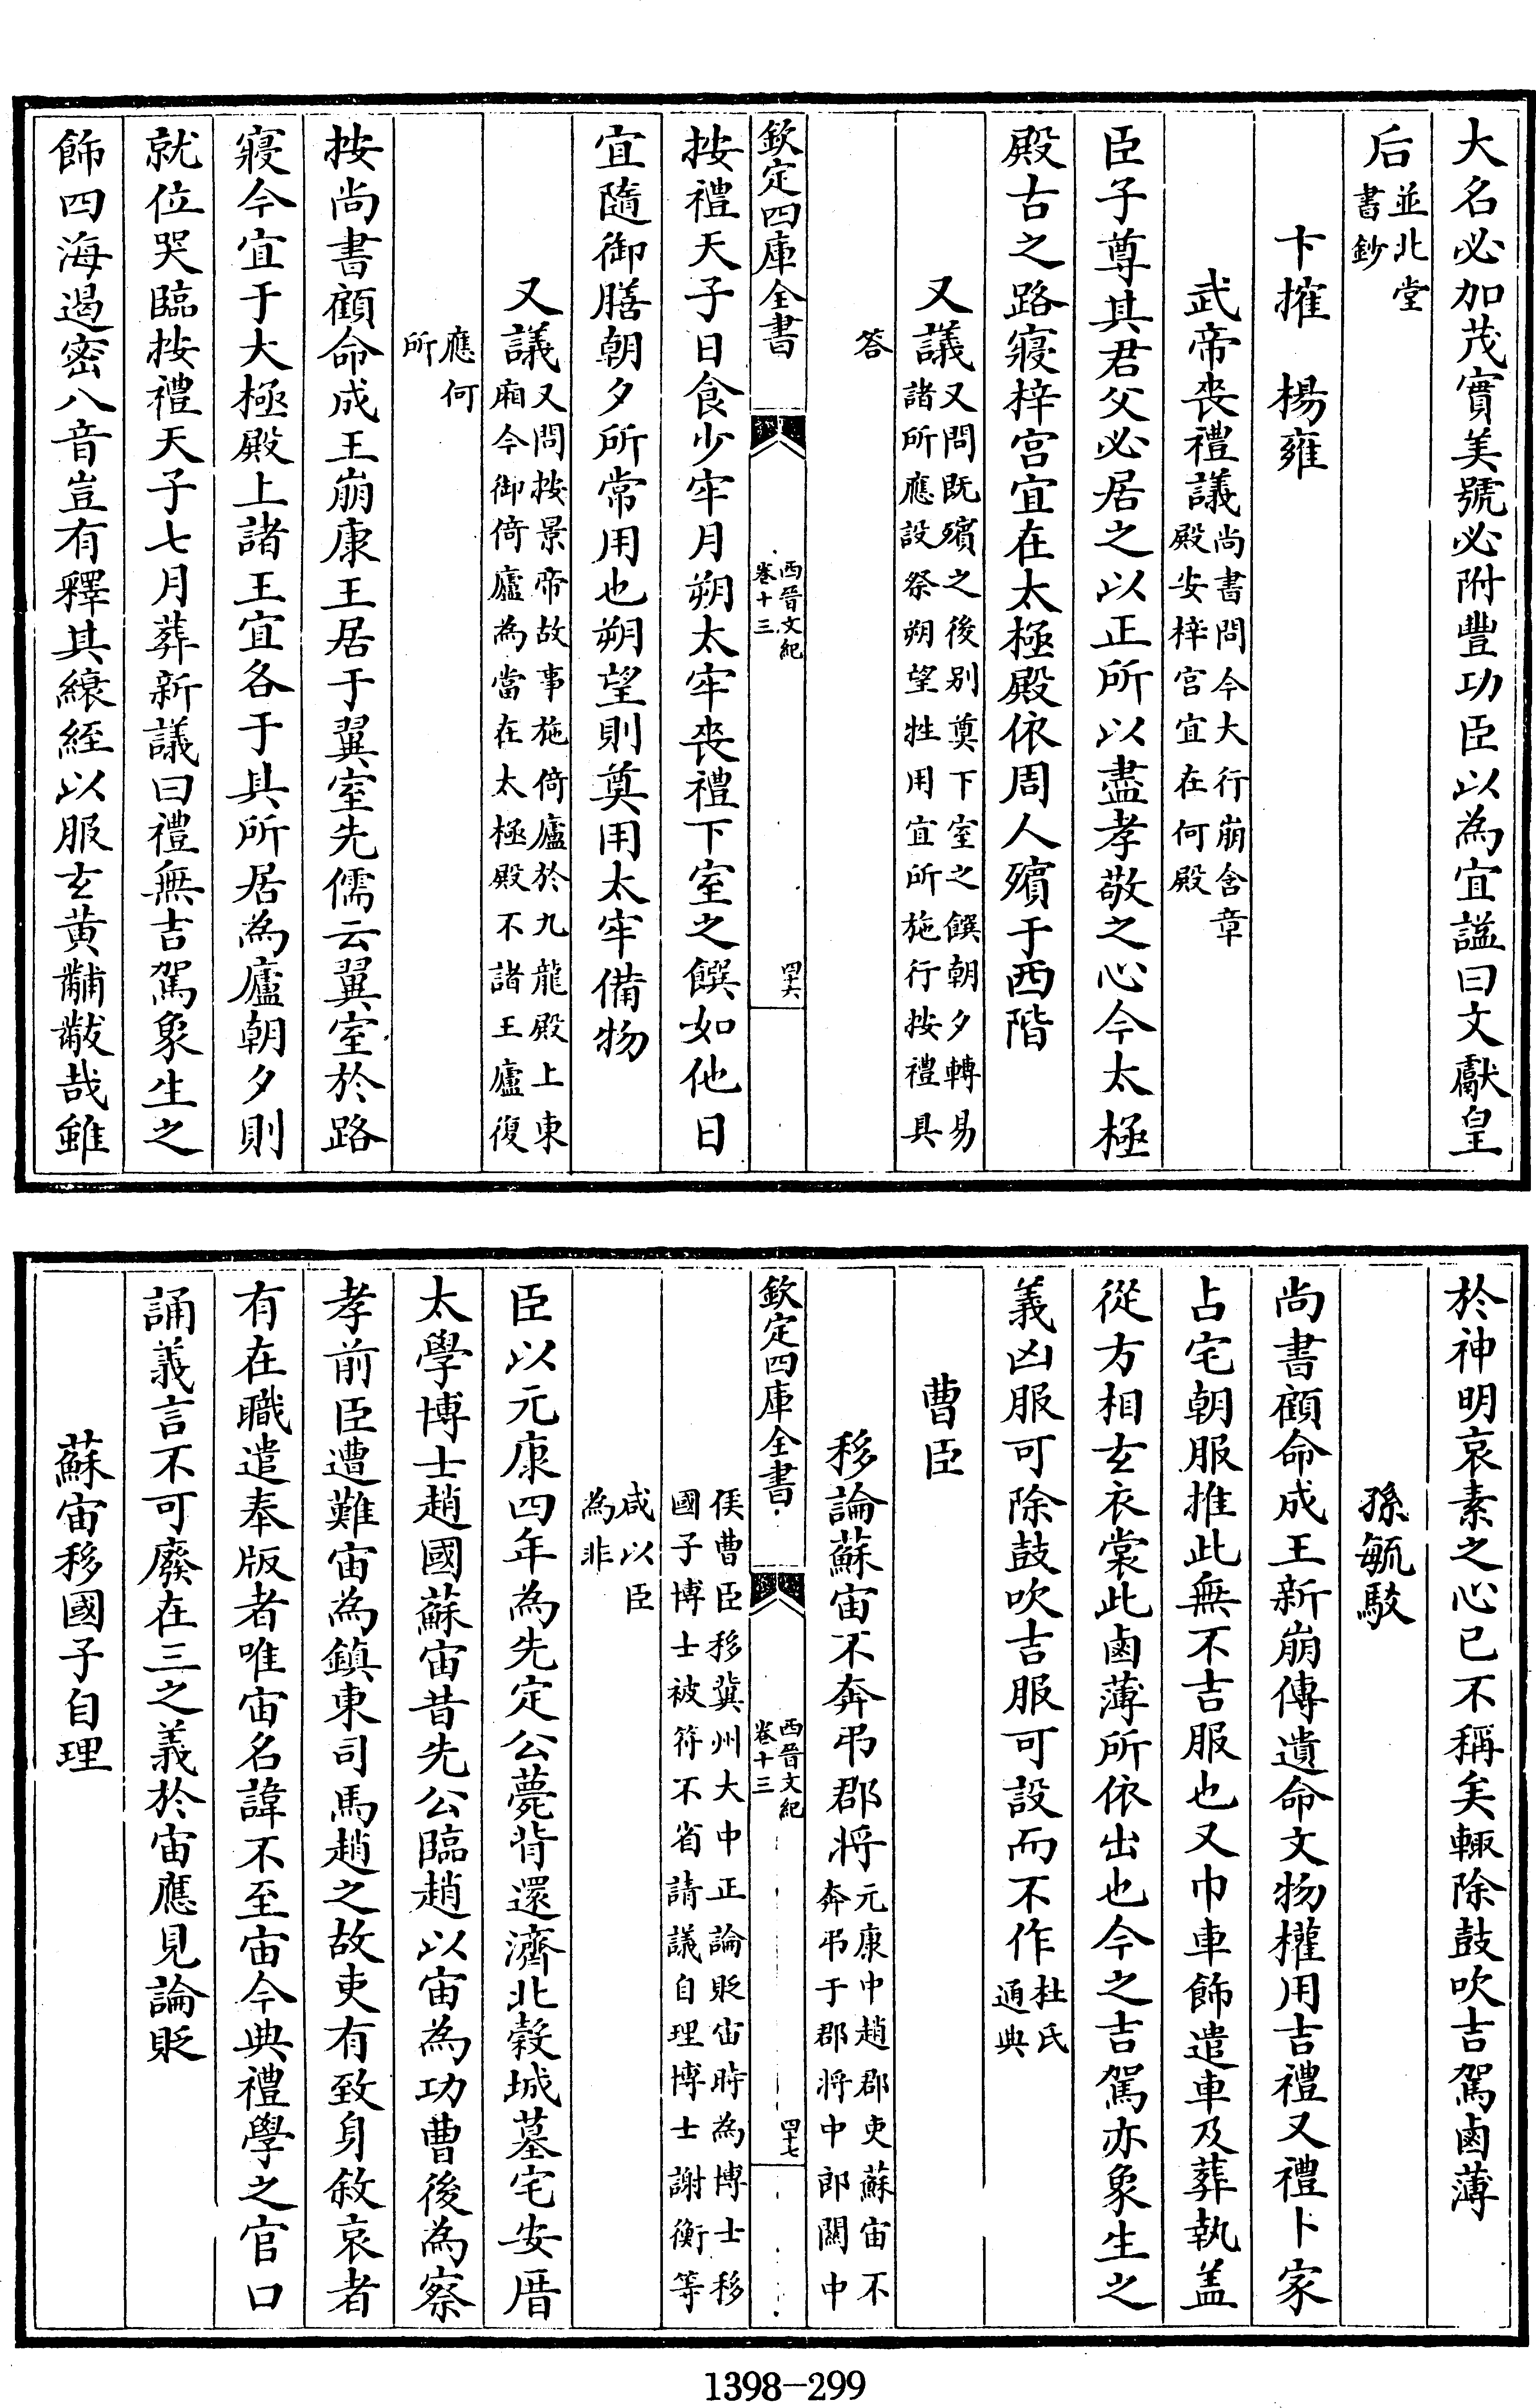 大名必加茂實美號必附豐功臣以為宜諡曰文獻皇
后並北堂書鈔
卞搉　楊雍
武帝喪禮議尚書問今大行崩含章殿安梓宮宜在何殿
臣子尊其君父必居之以正所以盡孝敬之心今太極
殿古之路寢梓宮宜在太極殿依周人殯于西階
又議又問既殯之後別奠下室之饌朝夕轉易諸所應設祭朔望牲用宜所施行按禮具
答
欽定四庫全書　西晉文紀卷十三　四十六
按禮天子日食少牢月朔太牢喪禮下室之饌如他日
宜隨御膳朝夕所常用也朔望則奠用太牢備物
又議又問按景帝故事施倚廬於九龍殿上東廂今御倚廬為當在太極殿不諸王廬復
應何所
按尚書顧命成王崩康王居于翼室先儒云翼室於路
寢今宜于大極殿上諸王宜各于其所居為廬朝夕則
就位哭臨按禮天子七月葬新議曰禮無吉駕象生之
飾四海遏密八音豈有釋其縗絰以服玄黃黼黻哉雖
於神明哀素之心已不稱矣輒除鼓吹吉駕鹵薄
孫毓駮
尚書顧命成王新崩傳遺命文物權用吉禮又禮卜家
占宅朝服推此無不吉服也又巾車飾遣車及葬執蓋
從方相玄衣裳此鹵薄所依出也今之吉駕亦象生之
義凶服可除鼓吹吉服可設而不作杜氏通典
曹臣
移論蘇宙不奔弔郡將元康中趙郡吏蘇宙不奔弔于郡將中郎關中
欽定四庫全書　西晉文紀卷十三　四十七
侯曹臣移冀州大中正論貶宙時為博士移國子博士被符不省請議自理博士謝衡等
咸以臣為非
臣以元康四年為先定公薨背還濟北穀城墓宅安厝
太學博士趙國蘇宙昔先公臨趙以宙為功曹後為察
孝前臣遭難宙為鎮東司馬趙之故吏有致身敘哀者
有在職遣奉版者唯宙名諱不至宙今典禮學之官口
誦義言不可廢在三之義於宙應見論貶
蘇宙移國子自理
1398—299